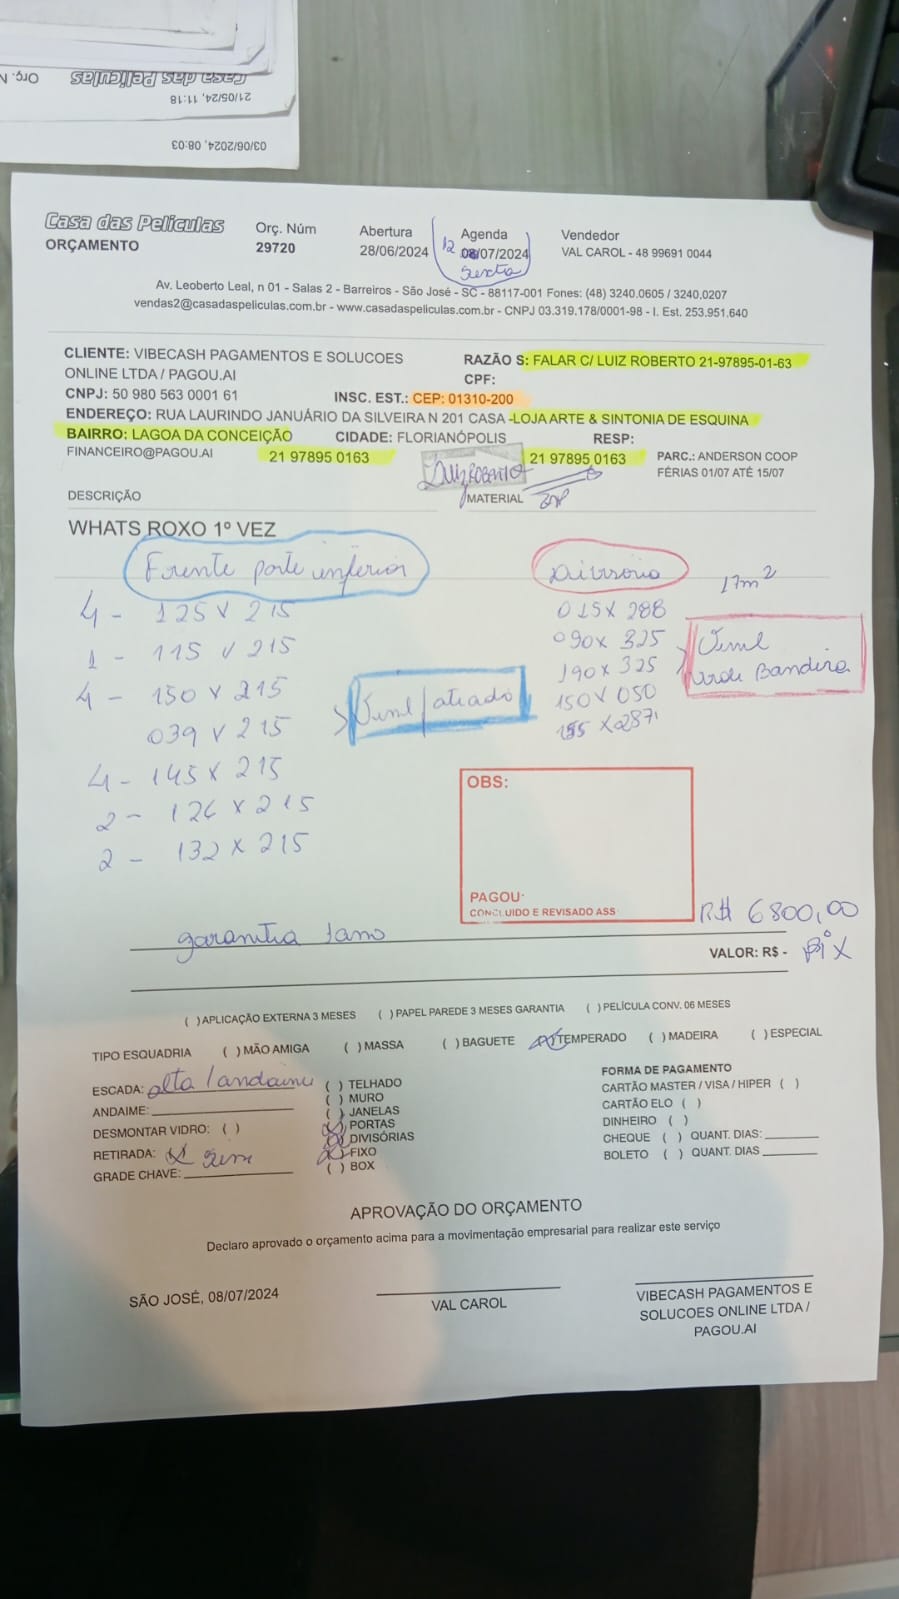 Orç. N Casa das Películas
21/05/24, 11:18
03/06/2024, 08:03
Casa das Películas
ORÇAMENTO
Orç. Núm
29720
Abertura
28/06/2024
Agenda
12 08/07/2024
Sexta
Vendedor
VAL CAROL - 48 99691 0044
Av. Leoberto Leal, n 01 - Salas 2 - Barreiros - São José - SC - 88117-001 Fones: (48) 3240.0605 / 3240.0207
vendas2@casadaspeliculas.com.br - www.casadaspeliculas.com.br - CNPJ 03.319.178/0001-98 - I. Est. 253.951.640
CLIENTE: VIBECASH PAGAMENTOS E SOLUCOES
ONLINE LTDA / PAGOU.AI
RAZÃO S: FALAR C/ LUIZ ROBERTO 21-97895-01-63
CPF:
CNPJ: 50 980 563 0001 61
INSC. EST.: CEP: 01310-200
ENDEREÇO: RUA LAURINDO JANUÁRIO DA SILVEIRA N 201 CASA -LOJA ARTE & SINTONIA DE ESQUINA
BAIRRO: LAGOA DA CONCEIÇÃO CIDADE: FLORIANÓPOLIS RESP:
FINANCEIRO@PAGOU.AI 21 97895 0163 LUIZ ROBERTO 21 97895 0163 PARC.: ANDERSON COOP
FÉRIAS 01/07 ATÉ 15/07
DESCRIÇÃO MATERIAL
WHATS ROXO 1º VEZ
Frente parte inferior
4 - 125 x 215
1 - 115 x 215
4 - 150 x 215
039 x 215
4 - 145 x 215
2 - 126 x 215
2 - 132 x 215
Vinil jateado
Divisória 17m²
015 x 288
090 x 325
190 x 325
150 x 050
155 x 287
Vinil
Verde Bandeira
OBS:
PAGOU:
CONCLUIDO E REVISADO ASS
R$ 6800,00
garantia 1 ano
VALOR: R$ - Pix
( )APLICAÇÃO EXTERNA 3 MESES ( )PAPEL PAREDE 3 MESES GARANTIA ( )PELÍCULA CONV. 06 MESES
TIPO ESQUADRIA ( )MÃO AMIGA ( )MASSA ( )BAGUETE (X)TEMPERADO ( )MADEIRA ( )ESPECIAL
ESCADA: alta / andaime
ANDAIME:
DESMONTAR VIDRO: ( )
RETIRADA: X Sim
GRADE CHAVE:
( ) TELHADO
( ) MURO
( ) JANELAS
(X) PORTAS
(X) DIVISÓRIAS
(X) FIXO
( ) BOX
FORMA DE PAGAMENTO
CARTÃO MASTER / VISA / HIPER ( )
CARTÃO ELO ( )
DINHEIRO ( )
CHEQUE ( ) QUANT. DIAS:
BOLETO ( ) QUANT. DIAS
APROVAÇÃO DO ORÇAMENTO
Declaro aprovado o orçamento acima para a movimentação empresarial para realizar este serviço
SÃO JOSÉ, 08/07/2024
VAL CAROL
VIBECASH PAGAMENTOS E
SOLUCOES ONLINE LTDA /
PAGOU.AI